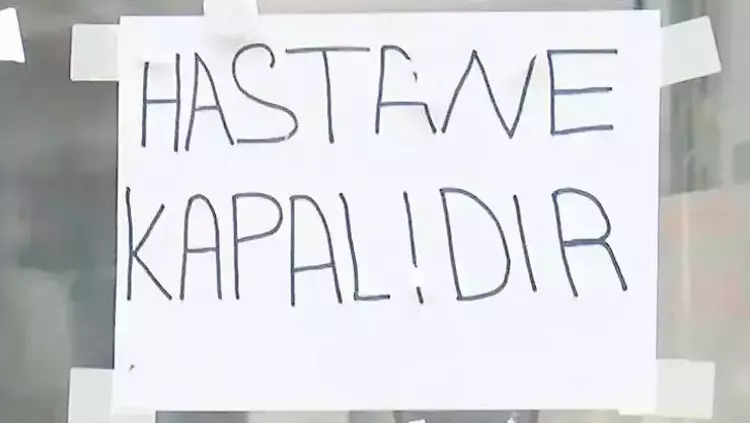 HASTANE
KAPALIDIR